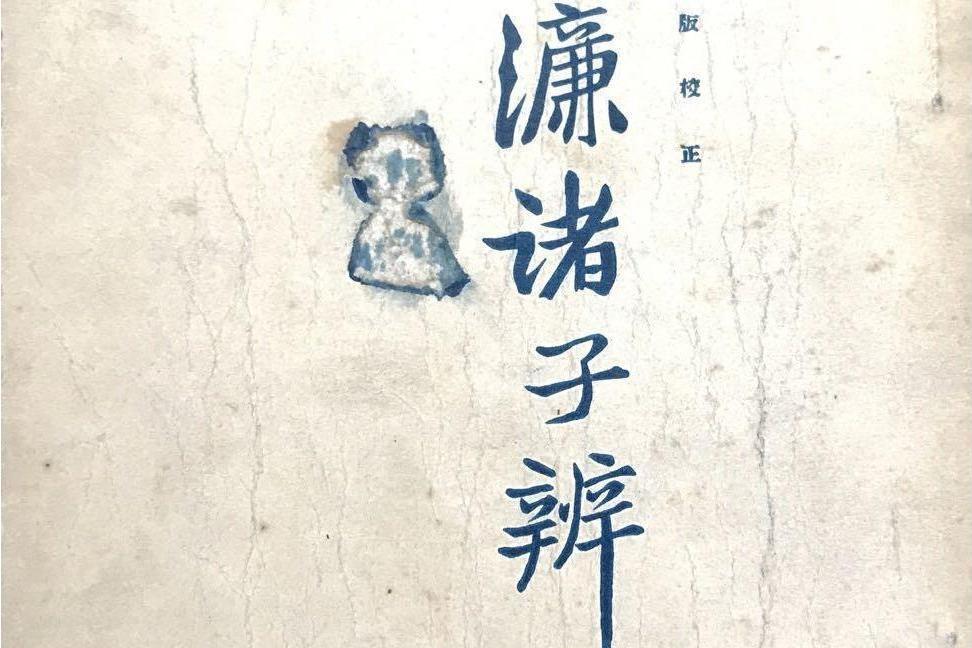 版校正
濂诸子辨